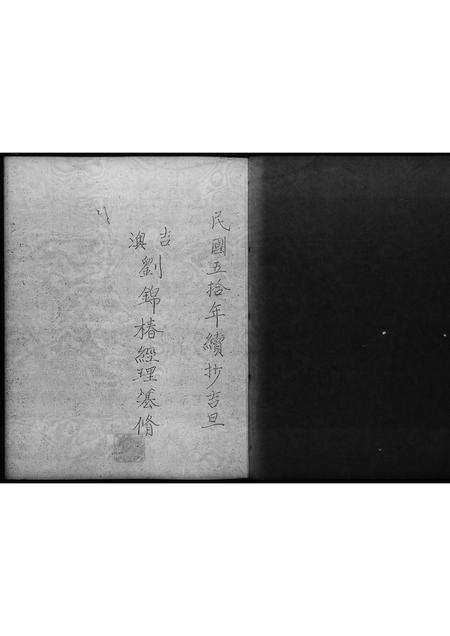 民國五拾年續抄吉旦
吉
澳
劉錦椿經理修